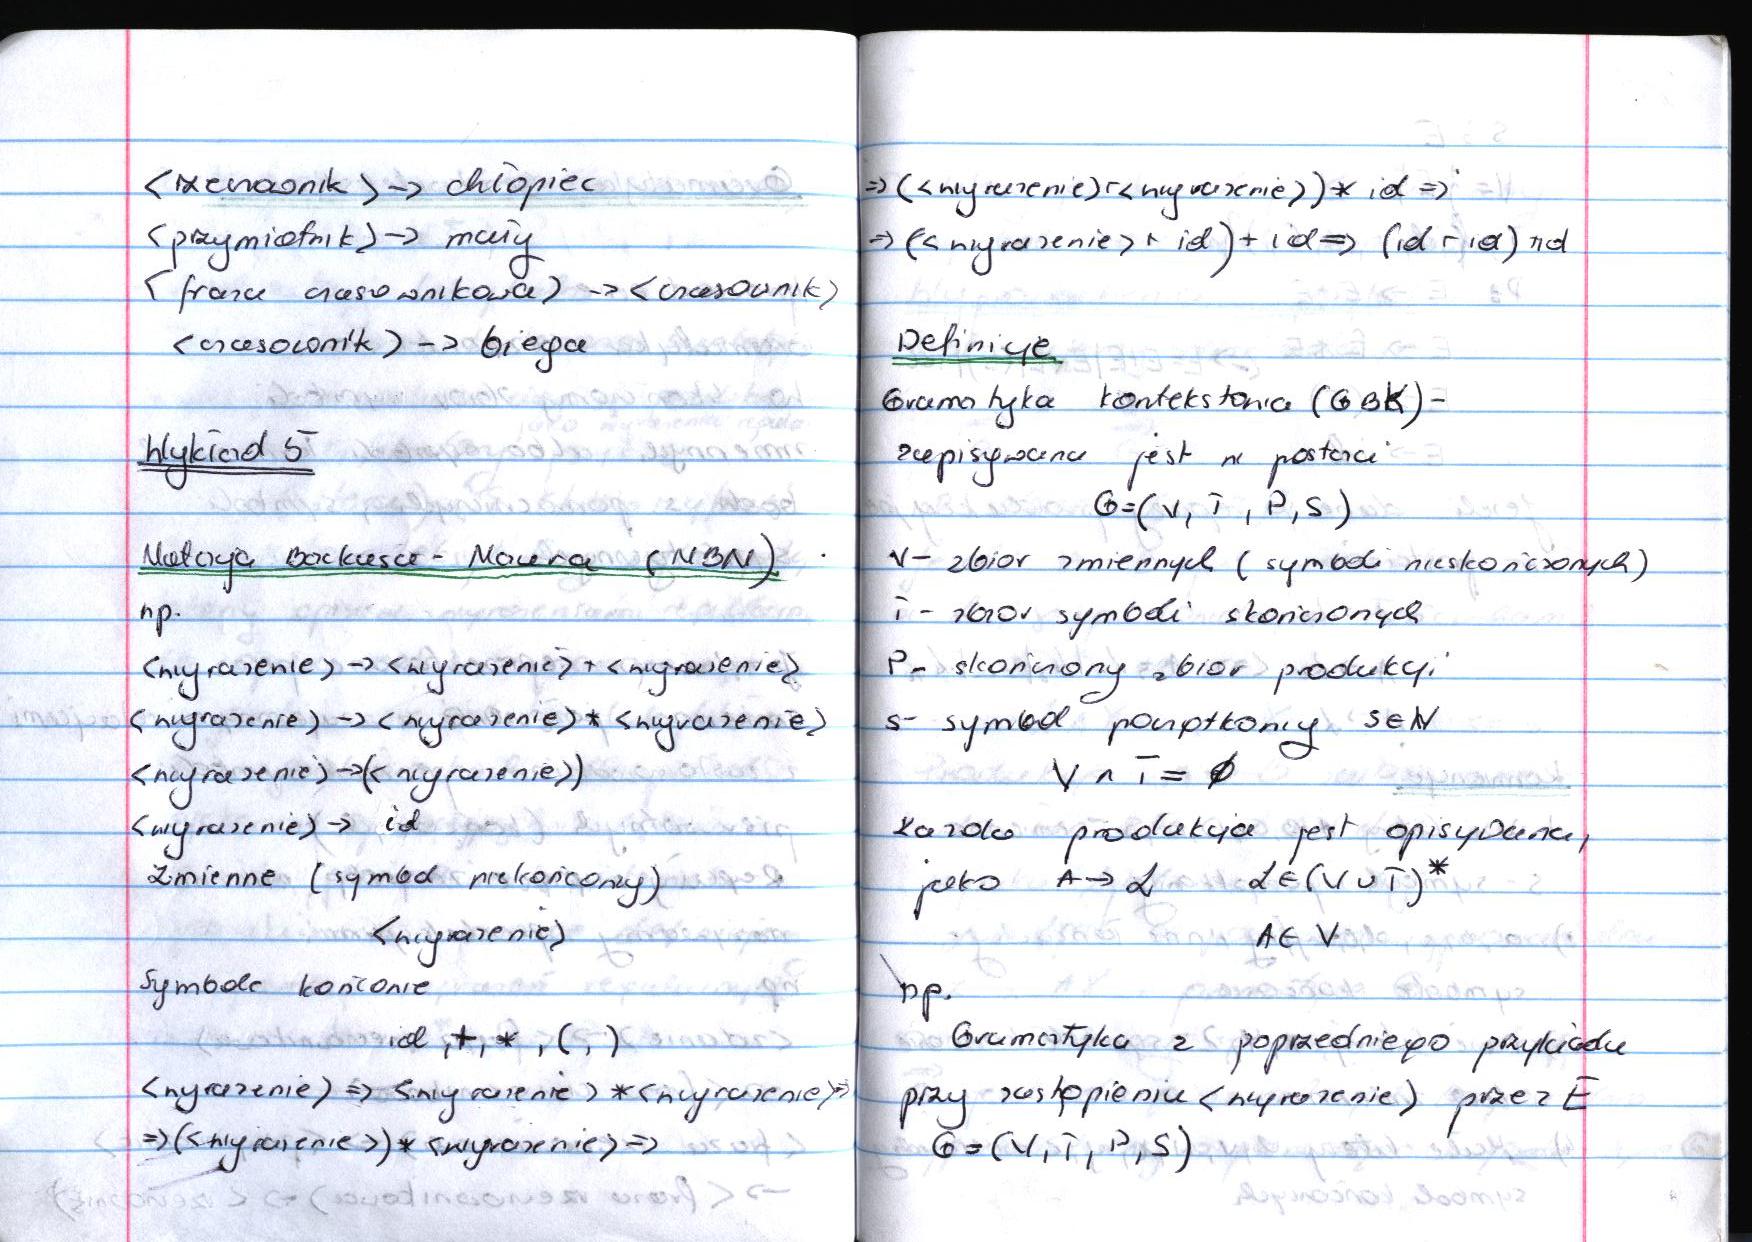 <rzeczownik> -> chłopiec
<przymiotnik> -> mały
<fraza czasownikowa> -> <czasownik>
<czasownik> -> biega
Wykład 5
Notacja Backusa - Naura (NBN)
np.
<wyrazenie> -> <wyrazenie> + <wyrazenie>
<wyrazenie> -> <wyrazenie> * <wyrazenie>
<wyrazenie> -> (<wyrazenie>)
<wyrazenie> -> id
Zmienne (symbol niekończony)
<wyrazenie>
Symbole kończone
id, +, *, (, )
<wyrazenie> => <wyrazenie> * <wyrazenie> =>
=> (<wyrazenie>) * <wyrazenie> =>
=> (<wyrazenie> + <wyrazenie>) * id =>
=> (<wyrazenie> + id) + id => (id + id) * id
Definicje
Gramatyka kontekstowa (GBK) -
zapisywana jest w postaci
G=(V, T, P, S)
V - zbior zmiennych (symboli nieskończonych)
T - zbior symboli skończonych
P - skończony zbior produkcji
S - symbol początkowy S∈N
V ∩ T = ∅
Kazda produkcja jest opisywana,
jako A -> α α∈(V∪T)*
A∈V
np.
Gramatyka z poprzedniego przykładu
przy zastąpieniu <wyrazenie> przez E
G=(V, T, P, S)